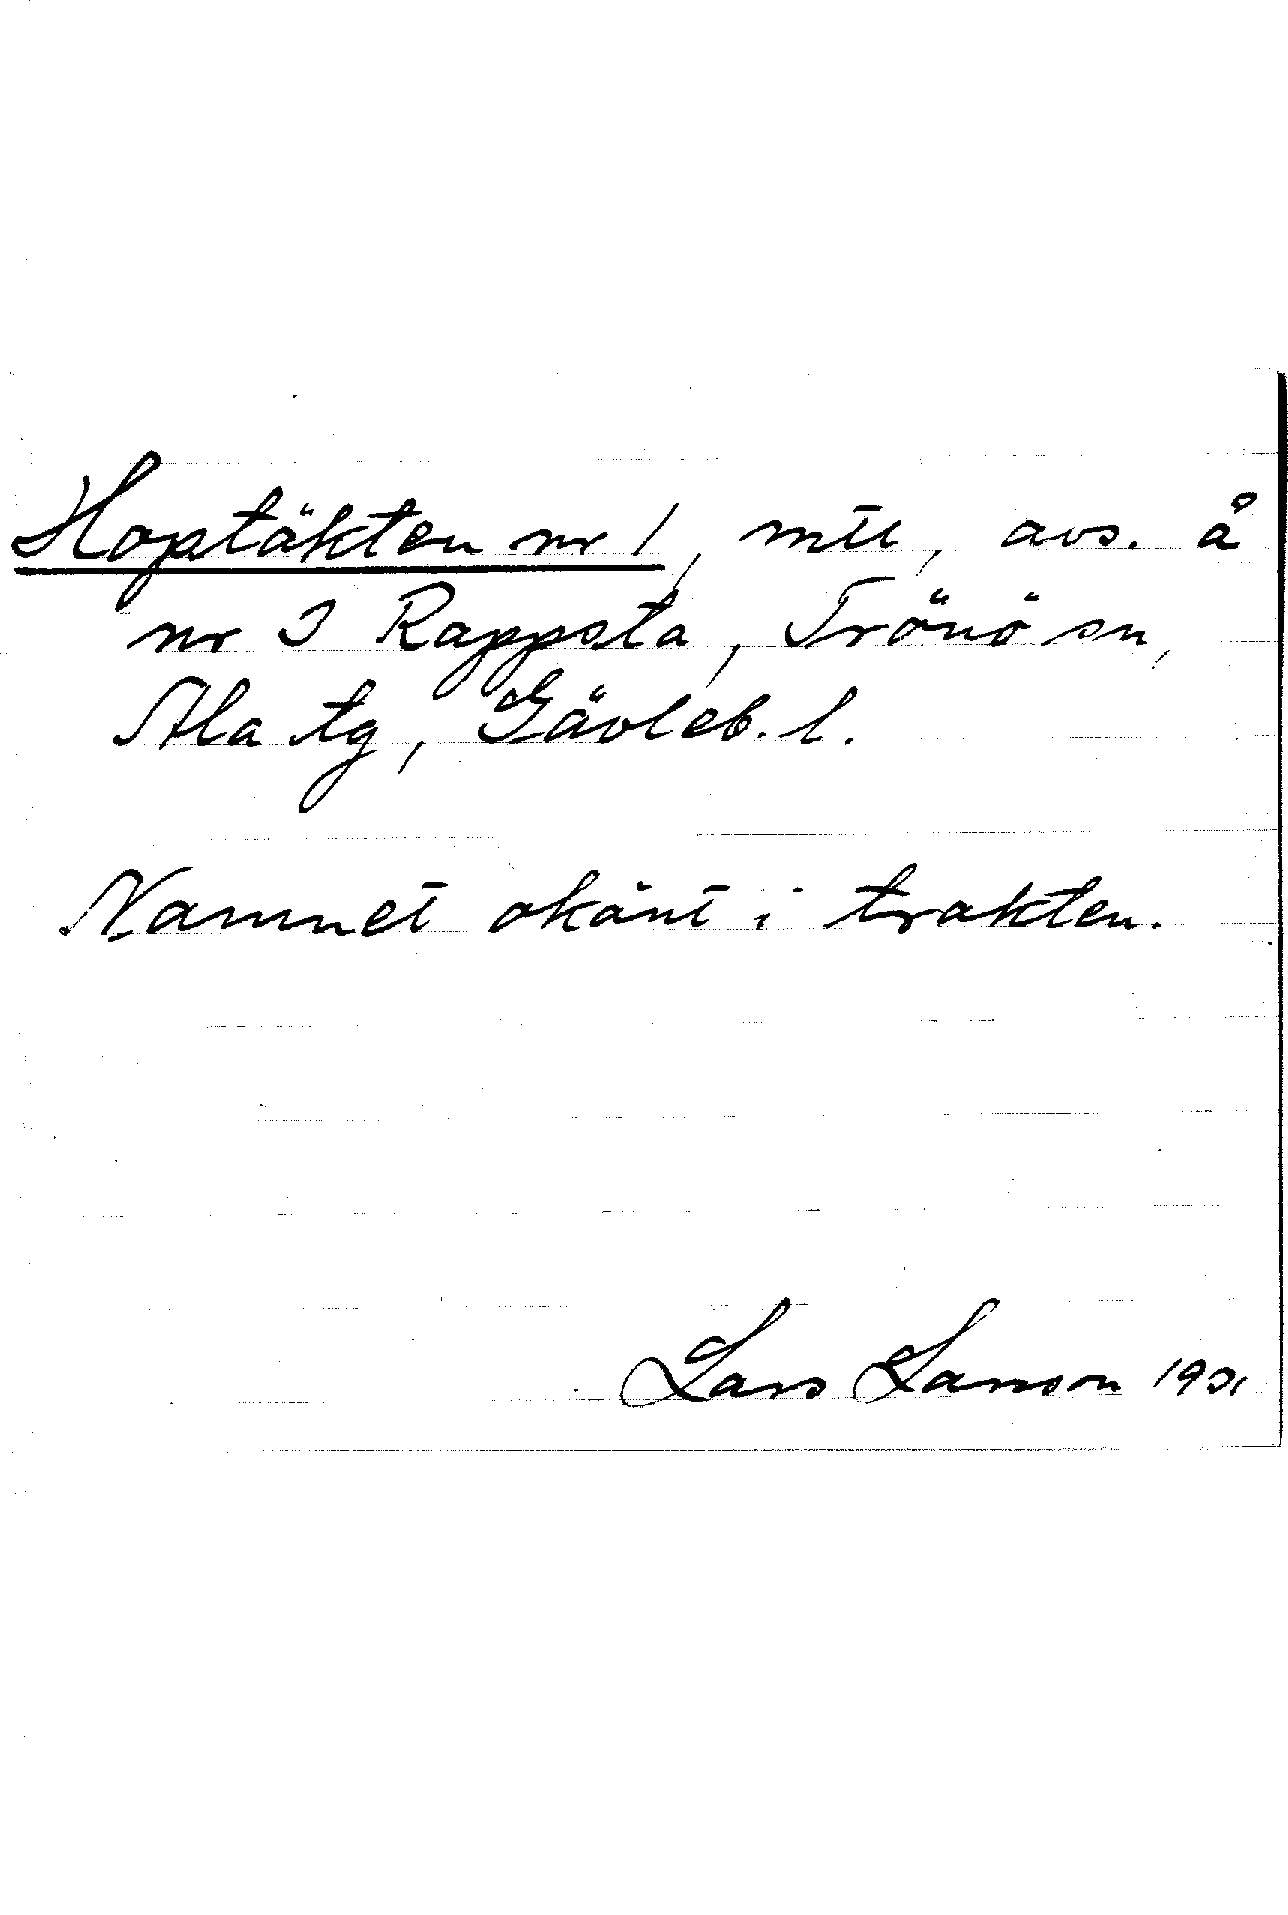 Hoptäkten nr 1, mtl, avs. å
nr 3 Rappsta, Trönö sn,
Ala tg, Gävleb. l.
Namnet okänt i trakten.
Lars Larsson